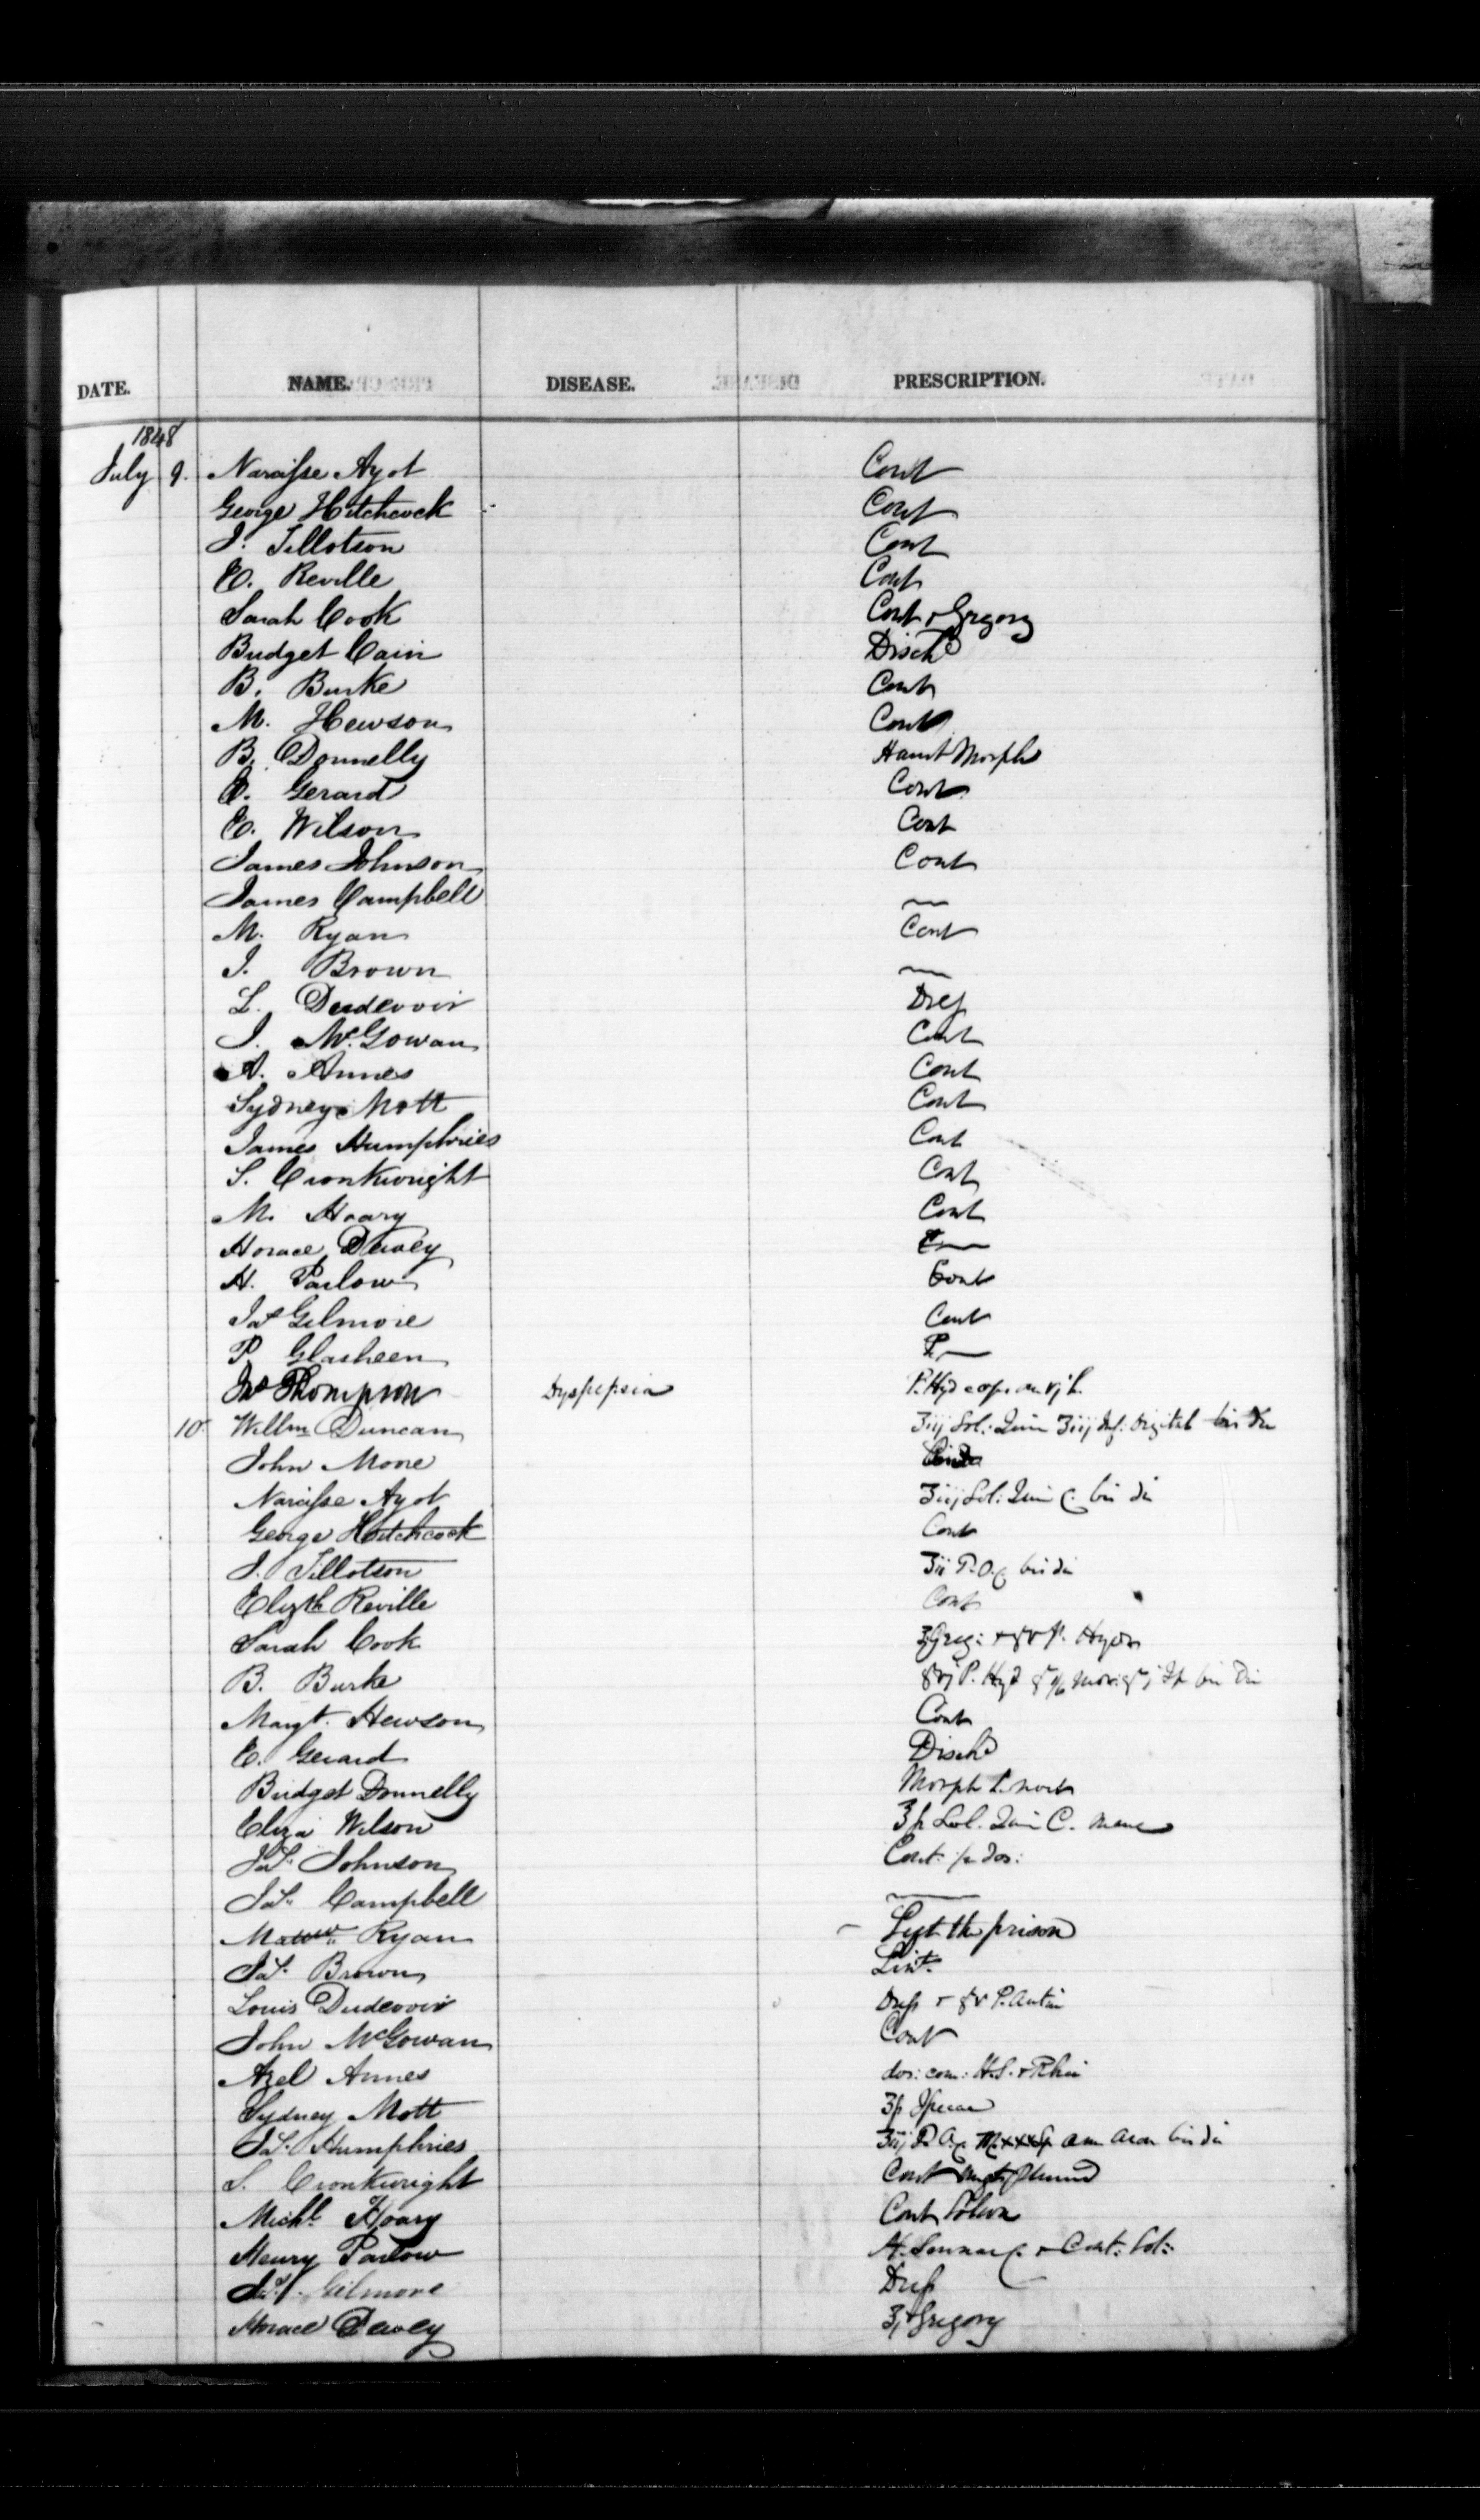 DATE. NAME. DISEASE. PRESCRIPTION.
1848
July 9. Narcisse Ayot Cont
George Hitchcock Cont
J. Tillotson Cont
E. Reville Cont
Sarah Cook Cont & Gregory
Bridget Cain Disch^d
B. Burke Cont
M. Hewson Cont
B. Donnelly Haust Morph
E. Gerard Cont
E. Wilson Cont
James Johnson Cont
James Campbell —
M. Ryan Cont
J. Brown —
L. Dudevoir Dress
J. McGowan Cont
A. Annes Cont
Sydney Mott Cont
James Humphries Cont
S. Cronkwright Cont
M. Hoary Cont
Horace Dewey
H. Parlow Cont
Jas Gilmore Cont
P. Glasheen
Jas Thompson Dyspepsia P. Hyd
10 Willm Duncan ʒiij Sol: Quin ʒiij Inf: Digital bis die
John Moore
Narcisse Ayot ʒiij Sol: Quin C. bis die
George Hitchcock Cont
J. Tillotson bis die
Elizth Reville Cont
Sarah Cook Greg:
B. Burke P. Hyd bis Die
Margt. Hewson Cont
E. Gerard Disch^d
Bridget Donnelly Morph
Eliza Wilson Sol. Quin C. mane
Jas. Johnson Cont. dos:
Jas. Campbell —
Mattw. Ryan – Left the prison
Jas. Brown Lint.
Louis Dudevoir Dress
John McGowan Cont
Azel Annes dos: com: H.S. & Rhei
Sydney Mott Ipecac
Jas. Humphries bis die
S. Cronkwright Cont
Michl. Hoary Cont
Henry Parlow Cont: Sol:
Jas. Gilmore Dress
Horace Dewey Gregory